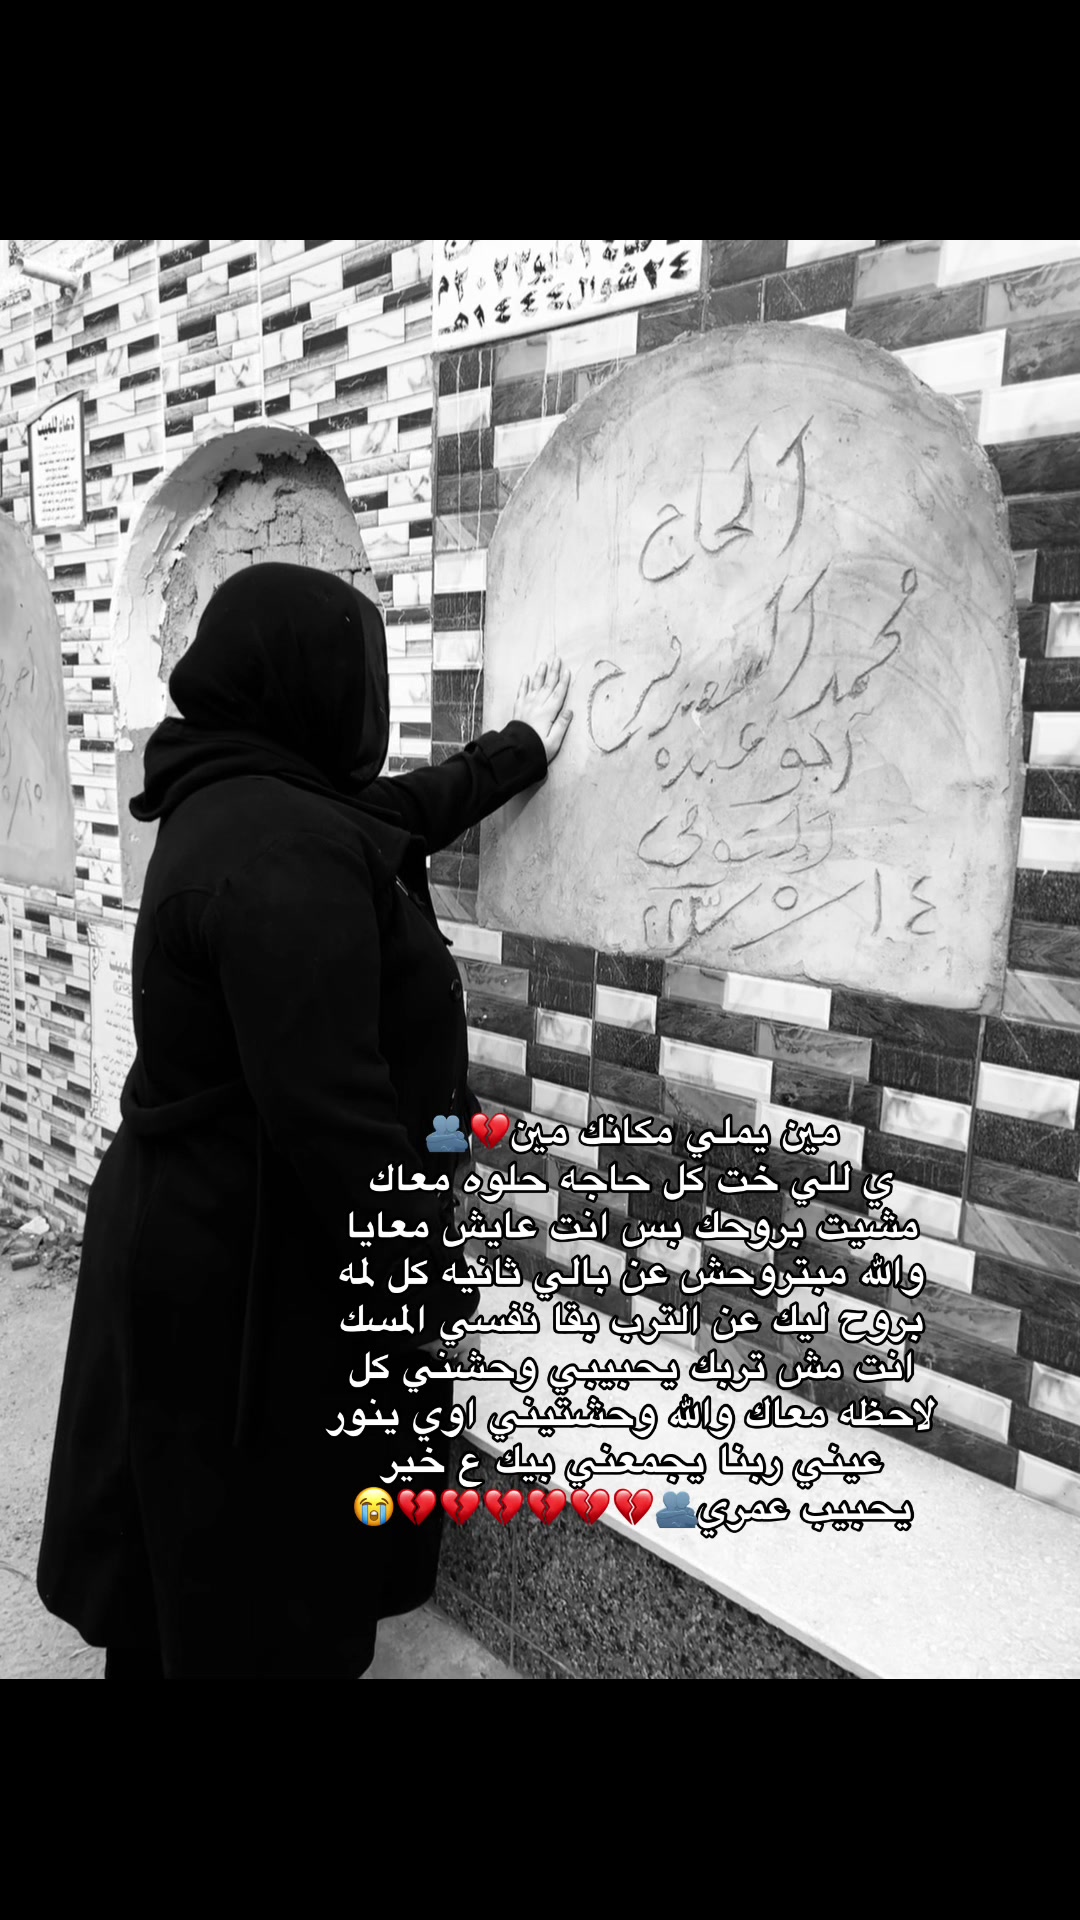 ٢٤ شوال ١٤٤٤هـ
دعاء للميت
الحاج
محمد السيد فرج
ابو عبده
المتوفى
مين يملي مكانك مين💔🫂
ي للي خت كل حاجه حلوه معاك
مشيت بروحك بس انت عايش معايا
والله مبتروحش عن بالي ثانيه كل لمه
بروح ليك عن الترب بقا نفسي المسك
انت مش تربك يحبيبي وحشني كل
لاحظه معاك والله وحشتيني اوي ينور
عيني ربنا يجمعني بيك ع خير
يحبيب عمري🫂💔💔💔💔💔💔😭